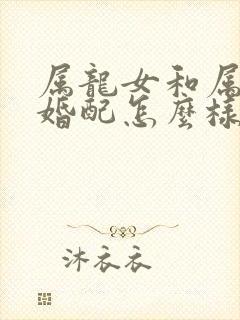 属龍女和属
婚配怎麼樣
沐衣衣